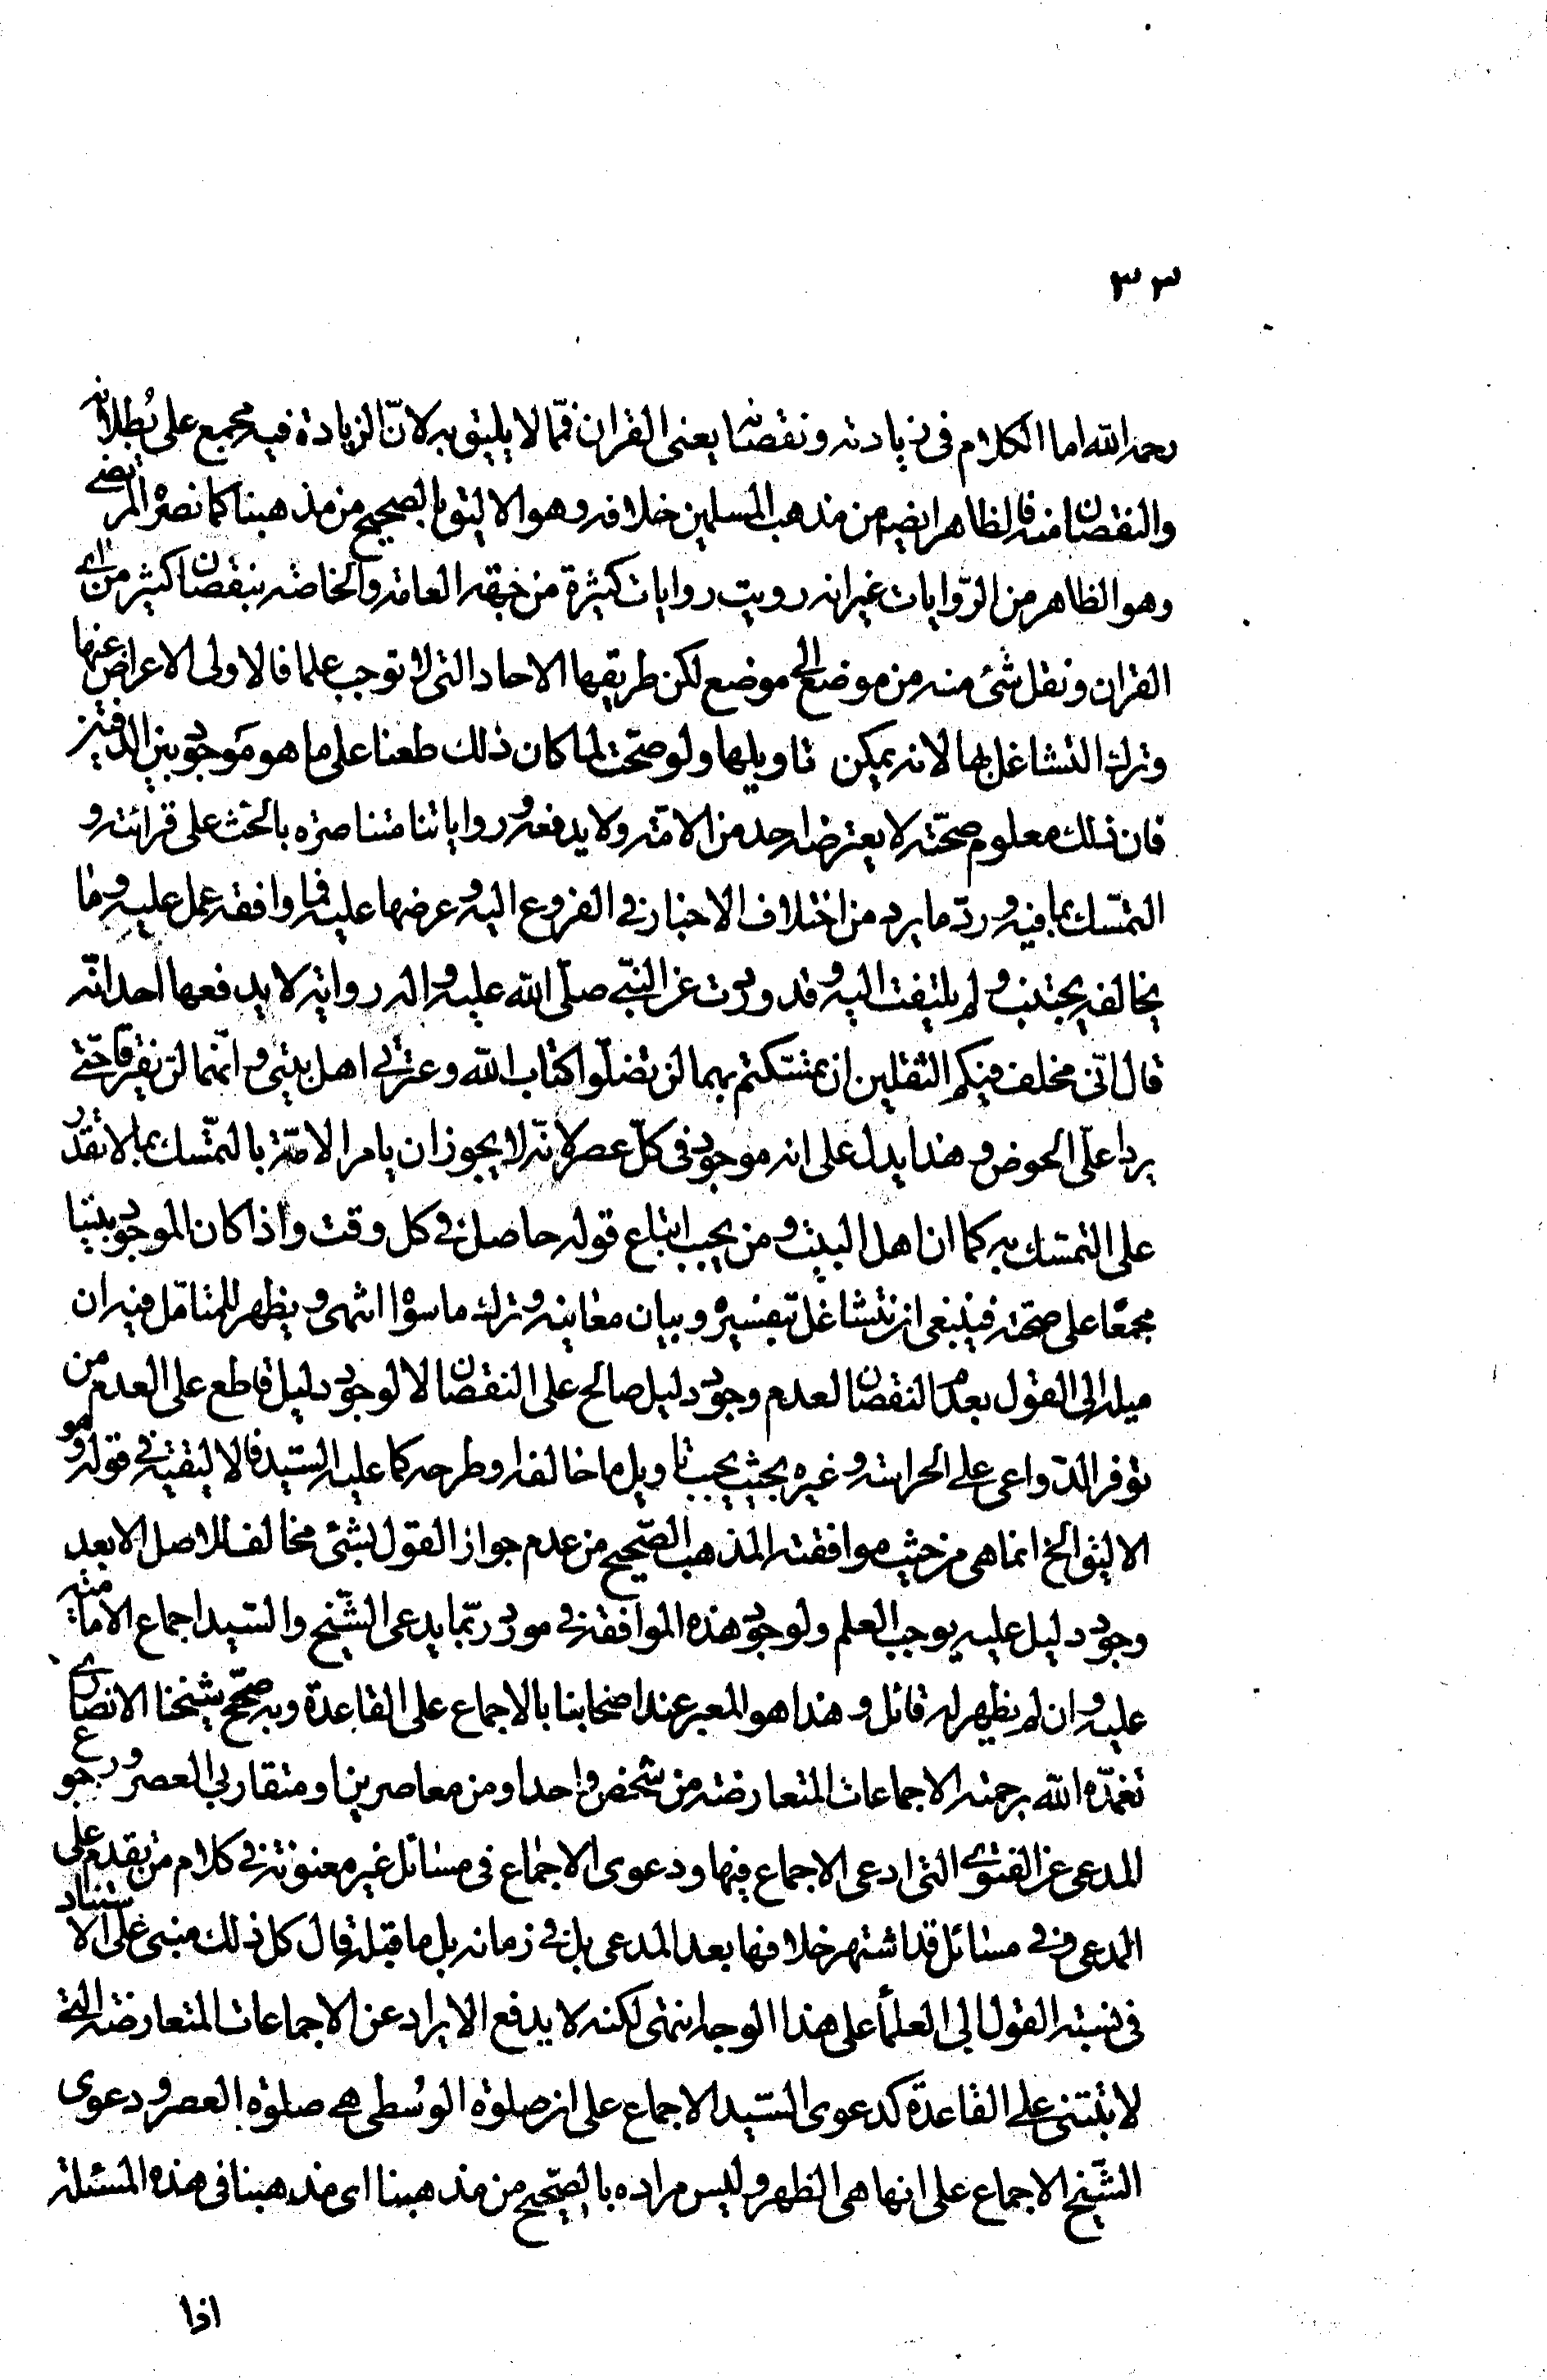 ٣٣
رحمه الله اما الكلام فى زيادته ونقصانه يعنى القران فمّا لا يليق به لانّ الزيادة فيه مجمع على بُطلانه
والنقصان منه فالظاهر ايضا من مذهب المسلمين خلافه وهو الاليق بالصحيح من مذهبنا كما نصره المرتضى
وهو الظاهر من الرّوايات غير انه رويت روايات كثيرة من جهة العامة والخاصة بنقصان كثير من اى
القران ونقل شئ منه من موضع الى موضع لكن طريقها الاحاد التى لا توجب علما فالاولى الاعراض عنها
وترك التشاغل بها لانه يمكن تاويلها ولو صحّت لما كان ذلك طعنا على ما هو موجود بين الدفتين
فان ذلك معلوم صحّته لا يعترضه احد من الامّة ولا يدفعه ورواياتنا متناصره بالحث على قرائته و
التمسّك بما فيه وردّ ما يرد من اختلاف الاخبار فى الفروع اليه وعرضها عليه فما وافقه عمل عليه وما
يخالفه يجتنب ولم يلتفت اليه وقد وردت عن النبّى صلّى الله عليه واله رواية لا يدفعها احد انّه
قال انّى مخلف فيكم الثقلين ان تمسّكتم بهما لن تضلّوا كتاب الله وعترتى اهل بيتى وانّهما لن يفترقا حتّى
يردا علىّ الحوض وهذا يدل على انه موجود فى كلّ عصر لانّه لا يجوز ان يامر الامّة بالتمّسك بما لا تقدر
على التمسّك به كما ان اهل البيت ومن يجب اتباع قوله حاصل فى كل وقت واذا كان الموجود بيننا
مجمعًا على صحّته فينبغى ان نتشاغل بتفسيره وبيان معانيه وترك ما سواه انتهى ويظهر للمتامّل فيه ان
ميله الى القول بعدم النقصان لعدم وجود دليل صالح على النقصان لا لوجود دليل قاطع على العدم من
توفر الدّواعى على الحراسة وغيره بحيث يجب تاويل ما خالفه او طرحه كما عليه السّيد فالاليقيّة فى قوله وهو
الاليق الخ انما هى من حيث موافقته المذهب الصّحيح من عدم جواز القول بشئ مخالف للاصل الا بعد
وجود دليل عليه يوجب العلم ولوجود هذه الموافقة فى مورد ربّما يدعى الشّيخ والسّيد اجماع الاماميّة
عليه وان لم يظهر له قائل وهذا هو المعبر عند اصحابنا بالاجماع على القاعدة وبه صحّح شيخنا الانصارى
تغمّده الله برحمته الاجماعات المتعارضة من شخص واحد او من معاصرين او متقاربى العصر ورجوع
المدعى عن الفتوى التى ادعى الاجماع فيها ودعوى الاجماع فى مسائل غير معنونة فى كلام من تقدم على
المدعى وفى مسائل قد اشتهر خلافها بعد المدعى بل فى زمانه بل ما قبله قال كل ذلك مبنى على الاستناد
فى نسبة القول الى العلماء على هذا الوجه انتهى لكنه لا يدفع الايراد عن الاجماعات المتعارضة التى
لا تبتنى على القاعدة كدعوى السّيد الاجماع على ان صلوة الوُسطى هى صلوة العصر ودعوى
الشّيخ الاجماع على انها هى الظهر وليس مراده بالصّحيح من مذهبنا اى مذهبنا فى هذه المسئلة
اذا